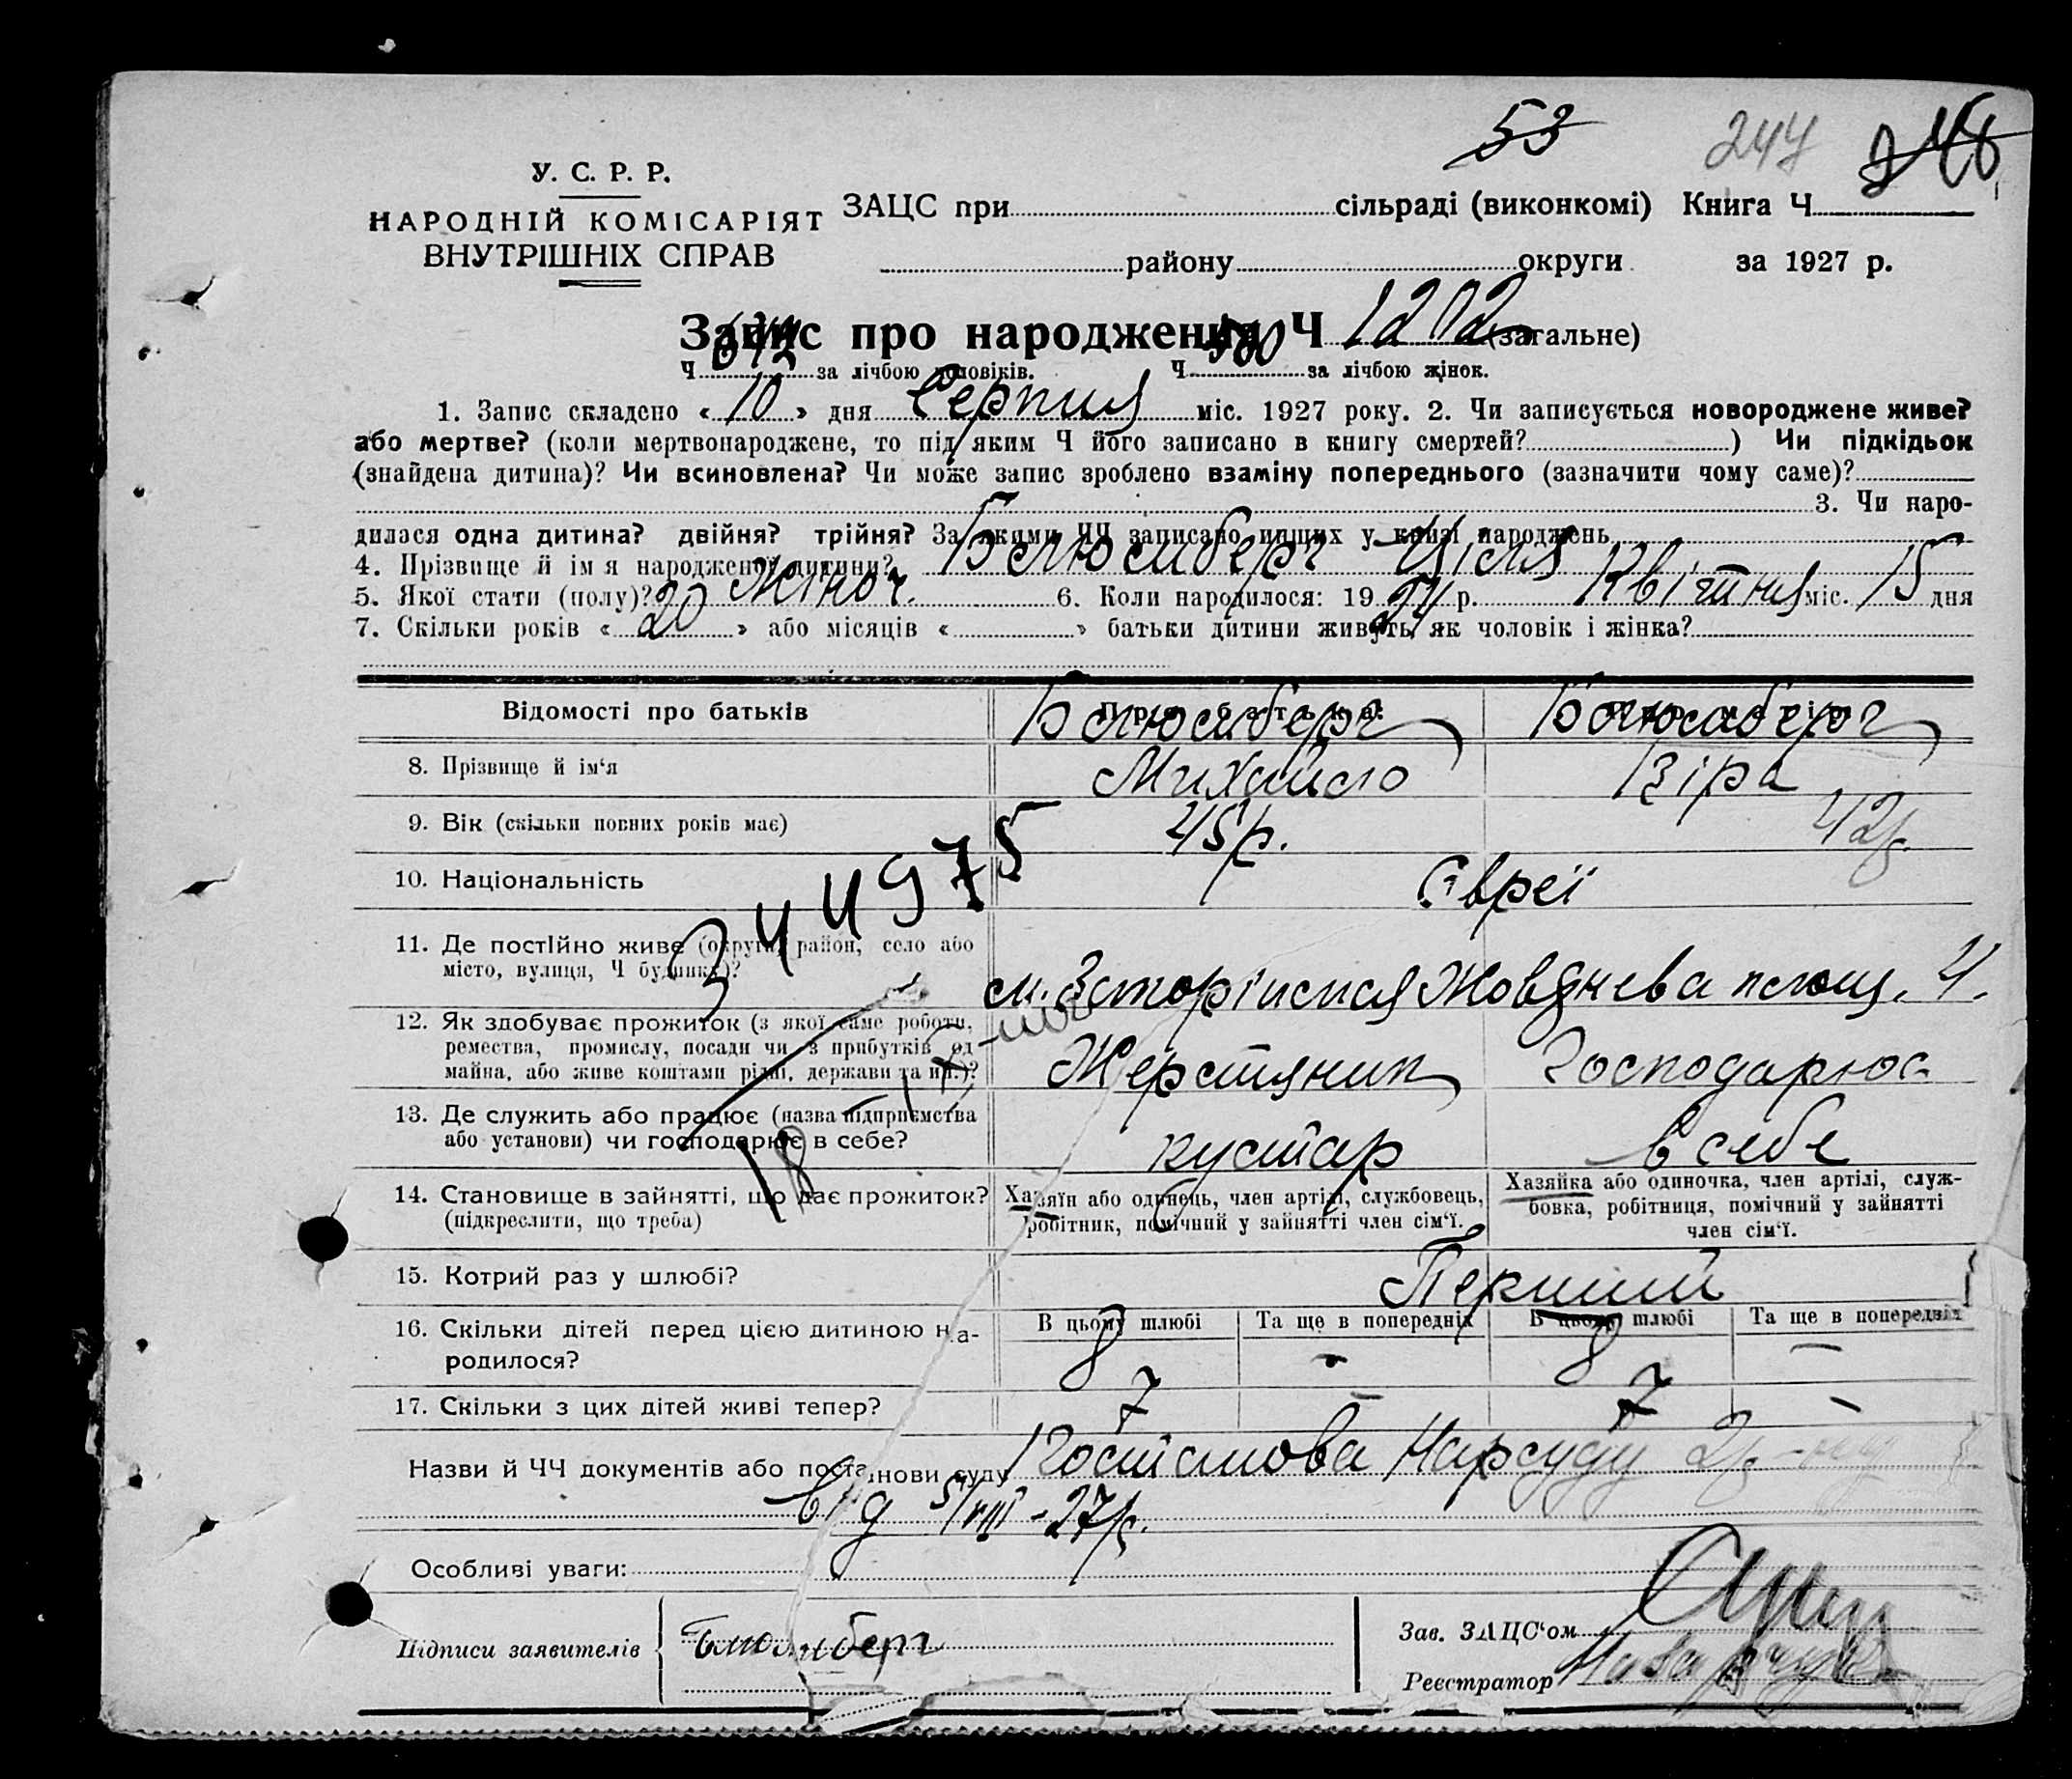 53 244 246
У. С. Р. Р.
НАРОДНІЙ КОМІСАРІЯТ
ВНУТРІШНІХ СПРАВ
ЗАЦС при сільраді (виконкомі) Книга Ч
району округи за 1927 р.
Запис про народження Ч 1202 (загальне)
Ч за лічбою чоловіків. Ч за лічбою жінок.
1. Запис складено « 10 » дня Серпня міс. 1927 року. 2. Чи записується новороджене живе?
або мертве? (коли мертвонароджене, то під яким Ч його записано в книгу смертей? ) Чи підкідьок
(знайдена дитина)? Чи всиновлена? Чи може запис зроблено взаміну попереднього (зазначити чому саме)?
3. Чи наро-
дилася одна дитина? двійня? трійня? За якими ЧЧ записано инших у книзі народжень
4. Прізвище й імя народженої дитини? Блюмберг Ціля
5. Якої стати (полу)? Жіноч. 6. Коли народилося: 19 р. Квітня міс. 15 дня
7. Скільки років « 20 » або місяців « » батьки дитини живуть як чоловік і жінка?
Відомості про батьків Про батька: Про матір:
Блюмберг Блюмберг
8. Прізвище й ім‘я Михайло
9. Вік (скільки повних років має) 45 р. 42 р.
10. Національність Євреї
344975
11. Де постійно живе (округа, район, село або
місто, вулиця, Ч будинку)?
м. Жовднева площ. 4.
12. Як здобуває прожиток (з якої саме роботи,
ремества, промислу, посади чи з прибутків од
майна, або живе коштами рідні, держави та ин.)?
Жерстяник Господарює
13. Де служить або працює (назва підприємства
або установи) чи господарює в себе?
кустар в себе
18
14. Становище в зайнятті, що дає прожиток?
(підкреслити, що треба)
Хазяїн або одинець, член артілі, службовець,
робітник, помічний у зайнятті член сім‘ї.
Хазяйка або одиночка, член артілі, служ-
бовка, робітниця, помічний у зайнятті
член сім‘ї.
15. Котрий раз у шлюбі? Перший
16. Скільки дітей перед цією дитиною на-
родилося?
В цьому шлюбі Та ще в попередніх В цьому шлюбі Та ще в попередніх
8 - 8 -
17. Скільки з цих дітей живі тепер? 7 - 7 -
Назви й ЧЧ документів або постанови суду Постанова Нарсуду
від 5/VIII-27 р.
Особливі уваги:
Підписи заявителів Блюмберг
Зав. ЗАЦС‘ом
Реєстратор